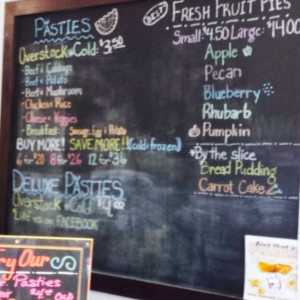 PASTIES
Overstock Cold: $3.50
- Beef + Cabbage
- Beef + Potato
- Beef + Mushroom
- Chicken + Rice
- Cheese + Veggies
- Breakfast: Sausage, Egg + Potato
BUY MORE! SAVE MORE! (cold + frozen)
6 to $20 8 to $26 12 to $36
DELUXE PASTIES
Overstock Cold $4.00
Like us on FACEBOOK
BEST FRESH FRUIT PIES
Small: $4.50 Large: $14.00
Apple
Pecan
Blueberry
Rhubarb
Pumpkin
*By the slice
Bread Pudding
Carrot Cake
Try Our
Pasties